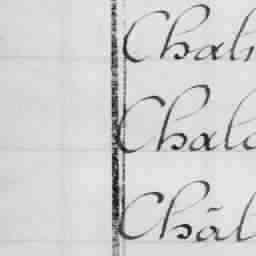 Chali
Chalo
Châl